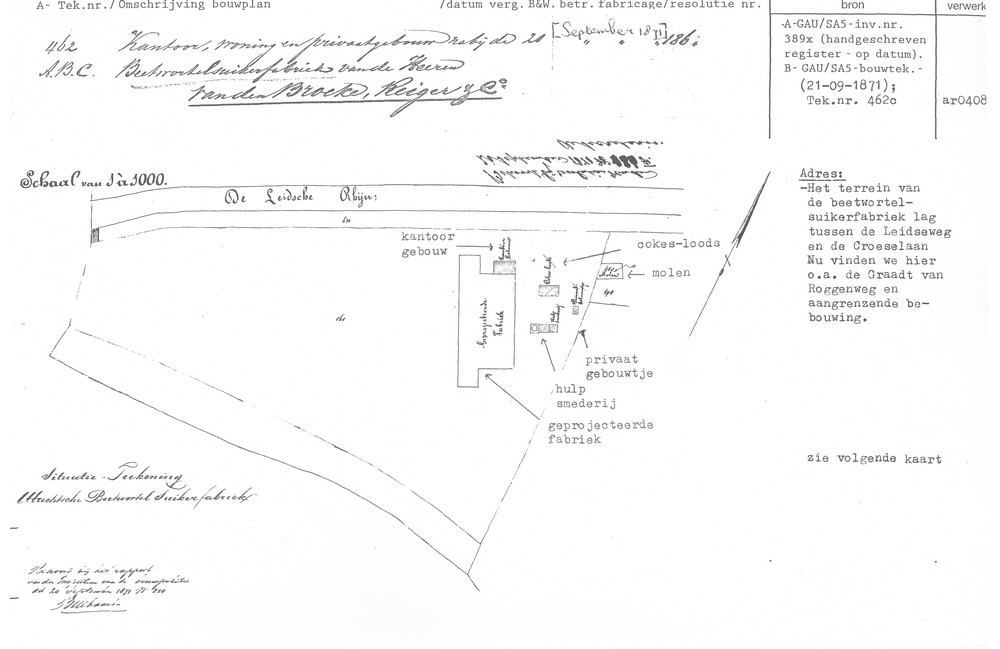 A- Tek.nr./Omschrijving bouwplan /datum verg.B&W.betr.fabricage/resolutie nr. bron verwerk
462 Kantoor, woning en privaatgebouw nabij de 20 [September 1871] 186
A.B.C. Beetwortelsuikerfabriek van de Heeren
van den Broeke, Keiger & Co
-A-GAU/SA5-inv.nr.
389x (handgeschreven
register - op datum).
B- GAU/SA5-bouwtek.-
(21-09-1871);
Tek.nr. 462c
ar0408
Schaal van 1 à 1000.
De Leidsche Rhijn:
kantoor
gebouw
cokes-loods
molen
geprojecteerde
Fabriek
privaat
gebouwtje
hulp
smederij
geprojecteerde
fabriek
Adres:
-Het terrein van
de beetwortel-
suikerfabriek lag
tussen de Leidseweg
en de Croeselaan
Nu vinden we hier
o.a. de Graadt van
Roggenweg en
aangrenzende be-
bouwing.
zie volgende kaart
Situatie-Teekening
Utrechtsche Beetwortel Suikerfabriek
Behoort bij het rapport
van den
dd 20 September 1871 N